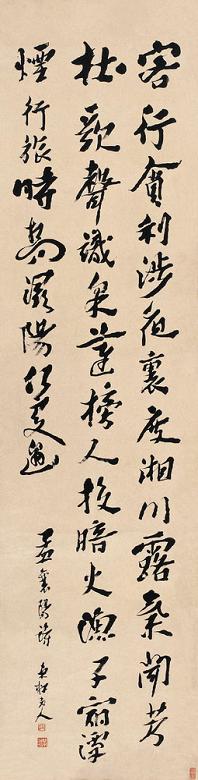 客行貪利涉夜裏度湘川露氣聞芳
杜歌聲識采蓮榜人投暗火漁子宿潭
煙行旅時陽何處邊
孟襄陽詩 老人